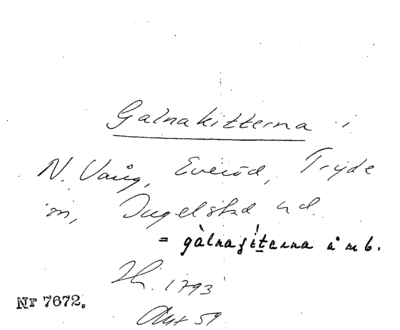 Galnakitterna i
N. Vång, Everöd, Tryde
sn, Ingelstad hd.
= gàlnagítterna å mb.
Ih. 1793
Akt 59
Nr 7672.